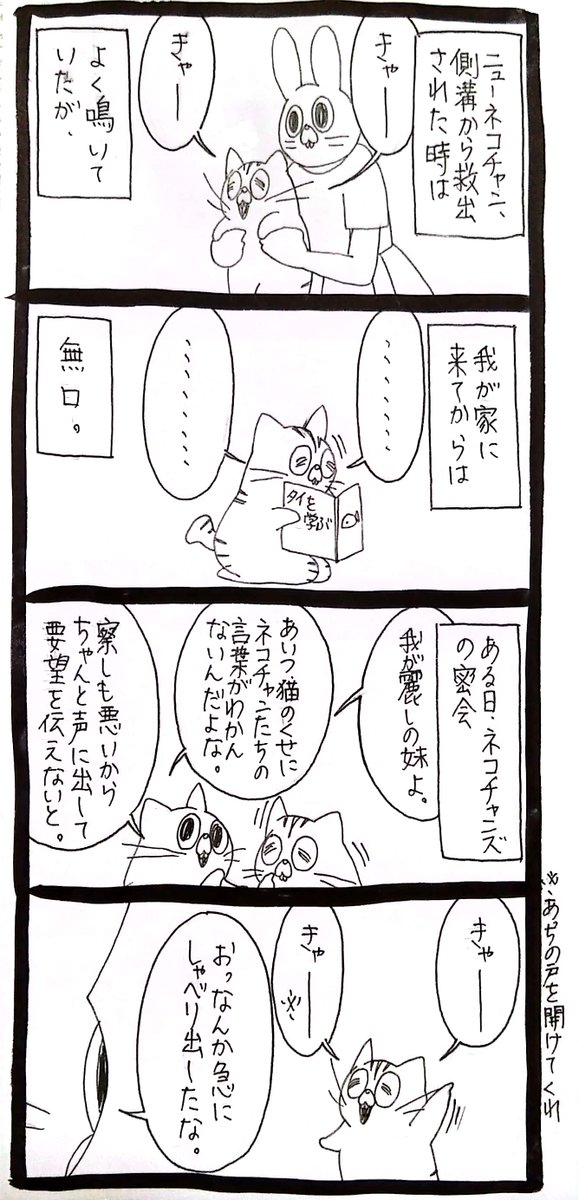 ニューネコチャン、
側溝から救出
された時は
きゃー
きゃー
よく鳴いて
いたが、
我が家に
来てからは
、、、、、、、、
、、、、、、、、
タイを
学ぶ
無口。
ある日、ネコチャンズ
の密会
我が麗しの妹よ。
あいつ猫のくせに
ネコチャンたちの
言葉がわかん
ないんだよな。
察しも悪いから
ちゃんと声に出して
要望を伝えないと。
きゃー
きゃー※
おっなんか急に
しゃべり出したな。
※あっちの戸を開けてくれ